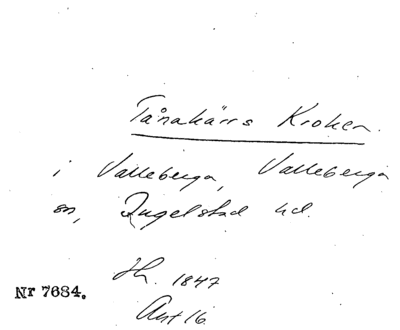 Tånakärrs Kroken.
i Valleberga, Valleberga
sn, Ingelstad hd.
Jh. 1847
Akt 16
Nr 7684.